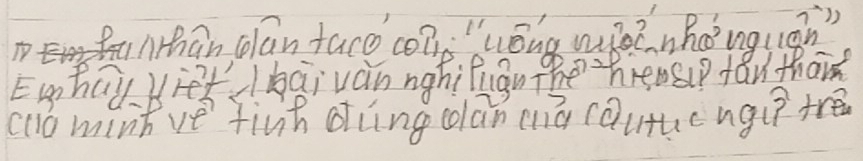 Nhân dân ta có câu: "uống nước nhớ nguồn"
Em hãy viết 1 bài văn nghị luận thể hiện sự tán thành
của mình về tính đúng đắn của câu tục ngữ trên